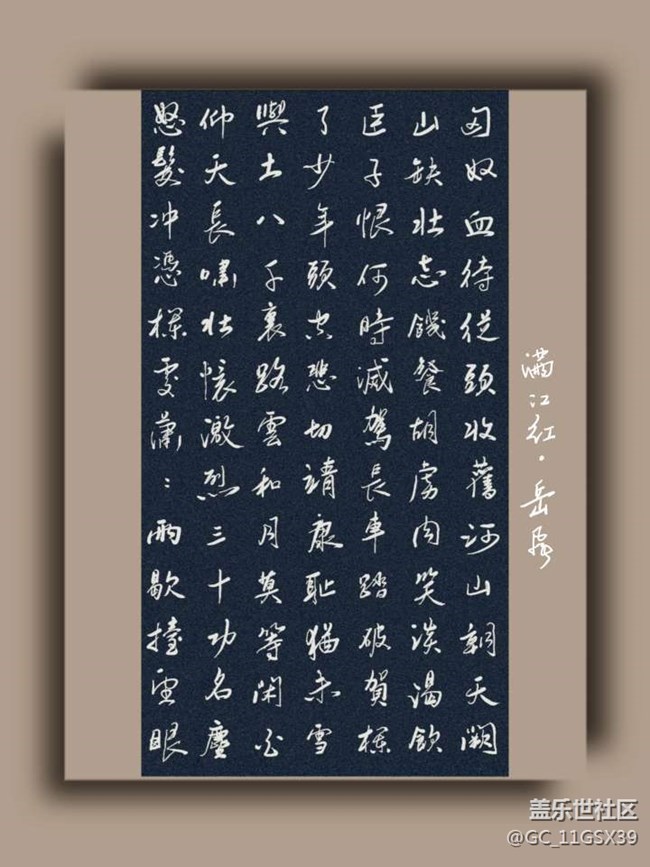 怒髮冲憑欄處瀟:雨歇擡望眼
仰天長嘯壯懷激烈三十功名塵
與土八千裏路雲和月莫等閑白
了少年頭空悲切靖康恥猶未雪
臣子恨何時滅駕長車踏破賀欄
山缺壯志饑餐胡虜肉笑談渴飲
匈奴血待從頭收舊河山朝天闕
滿江红·岳飛
盖乐世社区
@GC_11GSX39